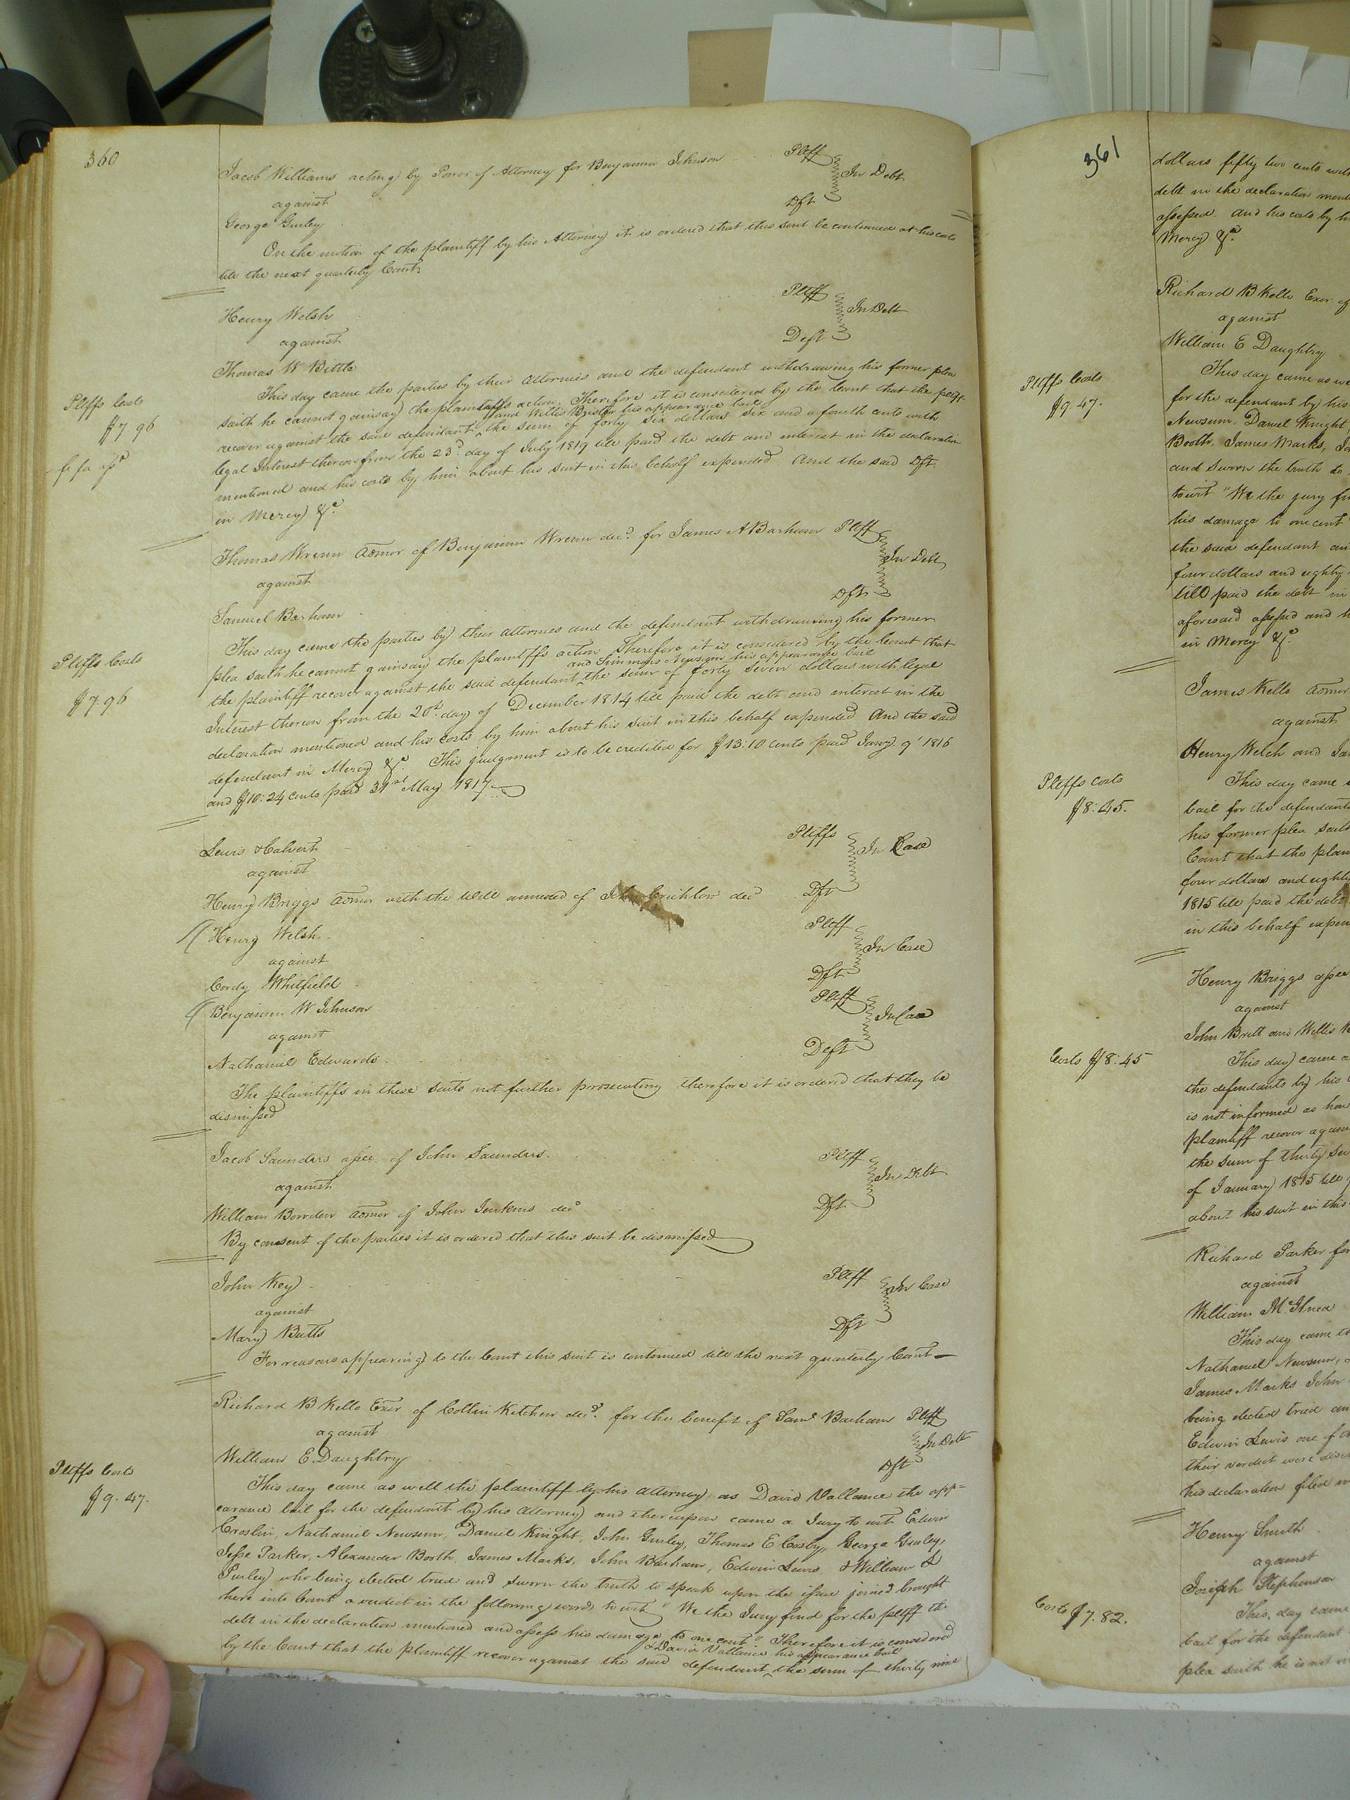 360
Jacob Williams acting by Power of Attorney for Benjamin Johnson Pltff
against In Debt
George Gurley Dft
On the motion of the plaintiff by his Attorney it is ordered that this suit be continued at his costs
till the next quarterly Court
Henry Welsh Pltff
against In Debt
Thomas W Bittle Deft
This day came the parties by their attornies and the defendant withdrawing his former plea
saith he cannot gainsay the plaintiffs action, Therefore it is considered by the Court that the pltff
and Willis his appearance bail
recover against the said defendant the sum of forty six dollars six and a fourth cents with
legal Interest thereon from the 23d day of July 1819 till paid the debt and interest in the declaration
mentioned and his costs by him about his suit in this behalf expended And the said Dft
in Mercy &c
Pltffs Costs
$7 96
fi fa
Thomas Wrenn admor of Benjamin Wrenn decd for James A Barham Pltff
against In Debt
Samuel Barham Dft
This day came the parties by their attornies and the defendant withdrawing his former
plea saith he cannot gainsay the plaintiffs action Therefore it is considered by the Court that
and Simmons Newsum his appearance bail
the plaintiff recover against the said defendant the sum of forty seven dollars with legal
Interest thereon from the 20th day of December 1814 till paid the debt and interest in the
declaration mentioned and his costs by him about his suit in this behalf expended And the said
defendant in Mercy &c This judgment is to be credited for $13:10 cents paid Jany 9' 1816
and $10:24 cents paid 31st May 1817
Pltffs Costs
$7.96
Lewis & Calvert Pltffs
against In Case
Henry Briggs admor with the Will annexed of John Crichlow decd Dft
Henry Welsh Pltff
against In Case
Cordy Whitfield Dft
Benjamin W Johnson Pltff
against In Case
Nathaniel Edwards Deft
The plaintiffs in these suits not further prosecuting therefore it is ordered that they be
dismissed
Jacob Saunders assee of John Saunders Pltff
against In Debt
William Borrden admor of John Jenkins decd Dft
By consent of the parties it is ordered that this suit be dismissed
John Key Pltff
against In Case
Mary Butts Dft
For reasons appearing to the Court this suit is continued till the next quarterly Court
Richard B Kello Exor of Collin Kitchen decd for the benefit of Saml Barham Pltff
against In Debt
William E. Daughtry Dft
Pltffs Costs
$9.47.
This day came as well the plaintiff by his attorney as David Vallance the app=
earance bail for the defendant by his attorney and thereupon came a Jury to wit Edwin
Croslin, Nathaniel Newsum, Daniel Knight, John Gurley, Thomas E Cosby, George Gurley,
Jesse Parker, Alexander Booth, James Marks, John Barham, Edwin Lewis & William
Purley who being elected tried and sworn the truth to speak upon the issue joined brought
here into Court a verdict in the following words to wit "We the Jury find for the pltff the
debt in the declaration mentioned and assess his damage to one cent" Therefore it is considered
& David Vallance his appearance bail
by the Court that the plaintiff recover against the said defendant the sum of thirty nine
361
dollars fifty two cents with
debt in the declaration
assessed and his costs by
Mercy &c
Richard B Kello Exor of
against
William E Daughtry
Pltffs Costs
$9.47.
This day came as we
for the defendant by his
Newsum, Daniel Knight
Booth, James Marks,
and sworn the truth to
towit "We the jury
his damage to one cent
the said defendant
four dollars and eighty
till paid the debt in
aforesaid assessed and
in Mercy &c
James Kello admor
against
Henry Welch and
Pltffs costs
$8:45.
This day came
bail for the defendants
his former plea saith
Court that the plain
four dollars and eighty
1815 till paid the debt
in this behalf expen
Henry Briggs assee
against
John Britt and Willis
Costs $8:45
This day came
the defendants by his
is not informed as how
plaintiff recover again
the sum of thirty
of January 1815 till
about his suit in this
Richard Parker for
against
William
This day came
Nathaniel Newsum,
James Marks John
being elected tried
Edwin Lewis one of the
their verdict were
his declaration filed
Henry Smith
against
Joseph Stephenson
Costs $7.82.
This day came
bail for the defendant
plea saith he is not